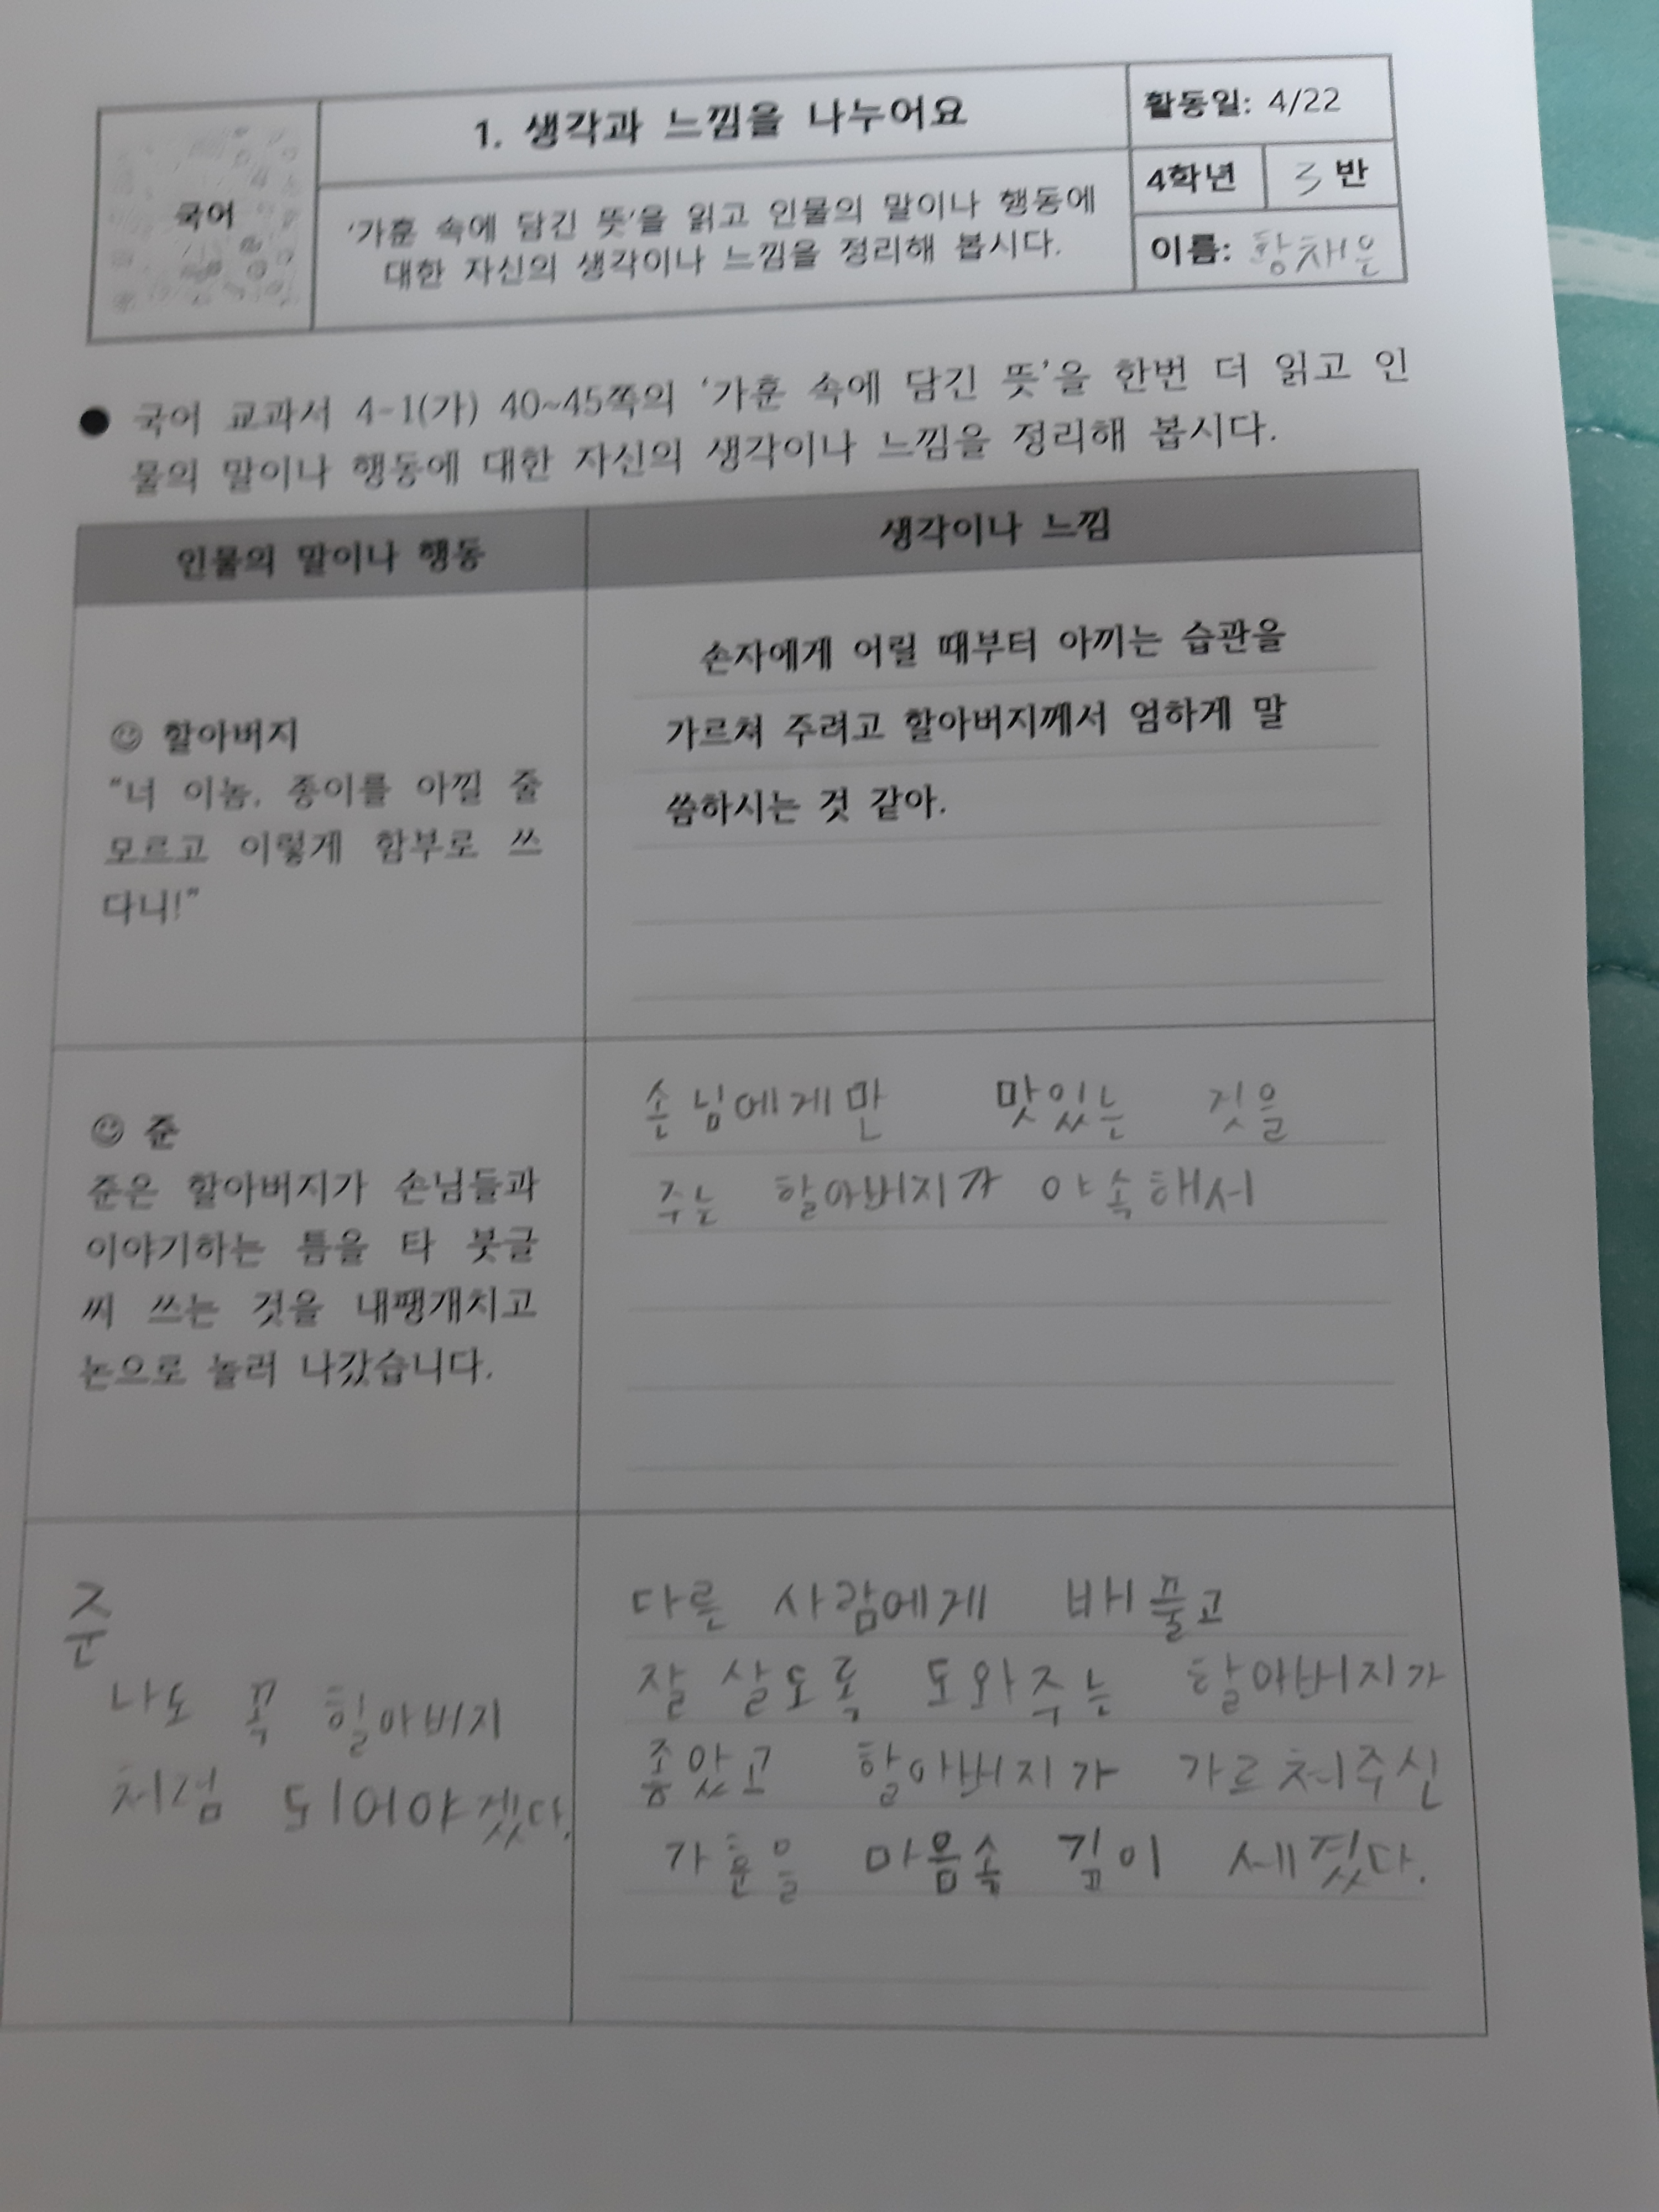 국어
1. 생각과 느낌을 나누어요
'가훈 속에 담긴 뜻'을 읽고 인물의 말이나 행동에
대한 자신의 생각이나 느낌을 정리해 봅시다.
활동일: 4/22
4학년 3반
이름: 황채은
● 국어 교과서 4-1(가) 40~45쪽의 '가훈 속에 담긴 뜻'을 한번 더 읽고 인
물의 말이나 행동에 대한 자신의 생각이나 느낌을 정리해 봅시다.
인물의 말이나 행동
생각이나 느낌
☺ 할아버지
"너 이놈, 종이를 아낄 줄
모르고 이렇게 함부로 쓰
다니!"
손자에게 어릴 때부터 아끼는 습관을
가르쳐 주려고 할아버지께서 엄하게 말
씀하시는 것 같아.
☺ 준
준은 할아버지가 손님들과
이야기하는 틈을 타 붓글
씨 쓰는 것을 내팽개치고
논으로 놀러 나갔습니다.
손님에게만 맛있는 것을
주는 할아버지가 야속해서
준
나도 꼭 할아버지
처럼 되어야겠다.
다른 사람에게 베풀고
잘 살도록 도와주는 할아버지가
좋았고 할아버지가 가르쳐주신
가훈을 마음속 깊이 세겼다.